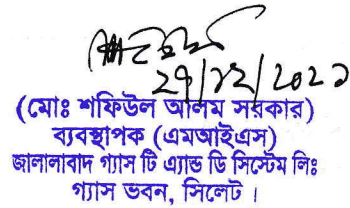 ২৭/১২/২০২১
(মোঃ শফিউল আলম সরকার)
ব্যবস্থাপক (এমআইএস)
জালালাবাদ গ্যাস টি এ্যান্ড ডি সিস্টেম লিঃ
গ্যাস ভবন, সিলেট ।